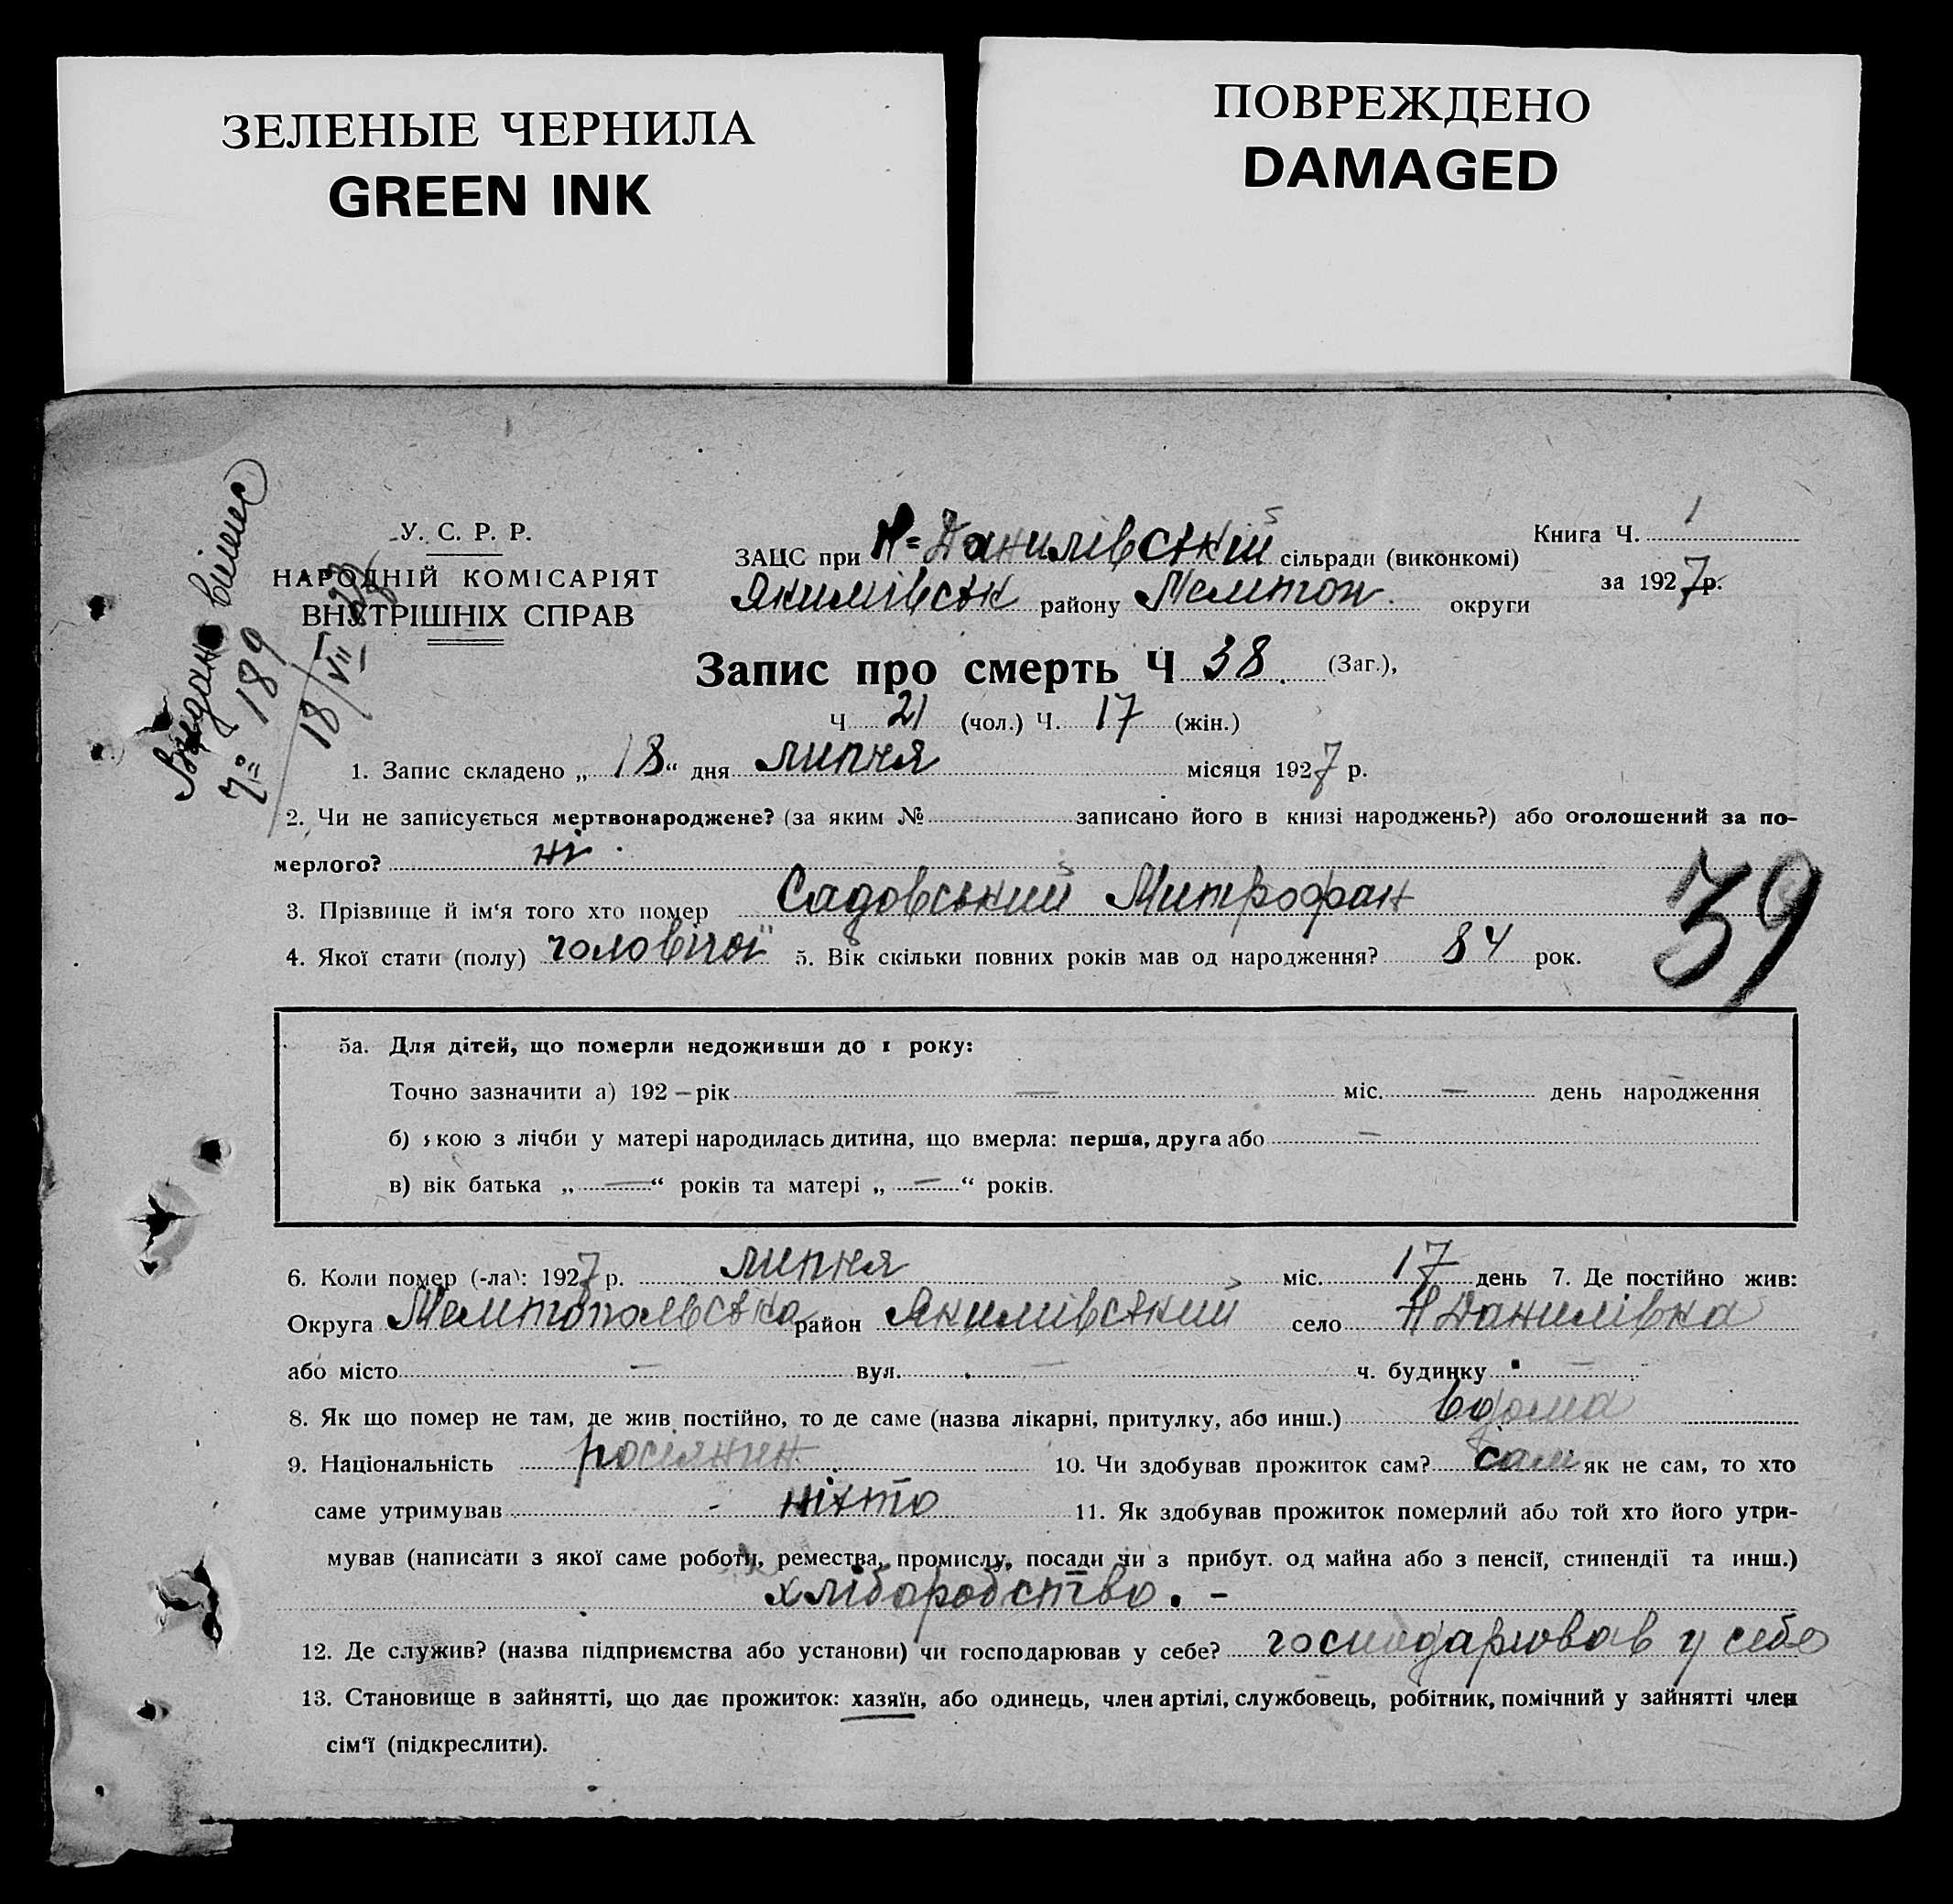 ЗЕЛЕНЫЕ ЧЕРНИЛА
GREEN INK
ПОВРЕЖДЕНО
DAMAGED
Видан
№ 189
18/VII
У. С. Р. Р.
НАРОДНІЙ КОМІСАРІЯТ
ВНУТРІШНІХ СПРАВ
ЗАЦС при Н=Данилівській сільради (виконкомі)
Якимівськ району Мелітоп. округи
Книга Ч. 1
за 1927 р.
Запис про смерть Ч 38 (Заг.),
Ч 21 (чол.) Ч. 17 (жін.)
1. Запис складено „ 18 “ дня липня місяця 1927 р.
2. Чи не записується мертвонароджене? (за яким № записано його в книзі народжень?) або оголошений за по-
мерлого? ні
3. Прізвище й ім‘я того хто помер Садовський Митрофан
39
4. Якої стати (полу) чоловічої 5. Вік скільки повних років мав од народження? 84 рок.
5а. Для дітей, що померли недоживши до 1 року:
Точно зазначити а) 192 – рік — міс. — день народження
б) якою з лічби у матері народилась дитина, що вмерла: перша, друга або —
в) вік батька „ — “ років та матері „ — “ років.
6. Коли помер (-ла): 1927 р. липня міс. 17 день 7. Де постійно жив:
Округа Мелітопольська район Якимівський село Н Данилівка
або місто — вул. — ч. будинку —
8. Як що помер не там, де жив постійно, то де саме (назва лікарні, притулку, або инш.) вдома
9. Національність росіянин 10. Чи здобував прожиток сам? сам як не сам, то хто
саме утримував - ніхто 11. Як здобував прожиток померлий або той хто його утри-
мував (написати з якої саме роботи, ремества, промислу, посади чи з прибут. од майна або з пенсії, стипендії та инш.)
хліборобство. -
12. Де служив? (назва підприємства або установи) чи господарював у себе? господарював у себе
13. Становище в зайнятті, що дає прожиток: хазяїн, або одинець, член артілі, службовець, робітник, помічний у зайнятті член
сім‘ї (підкреслити).